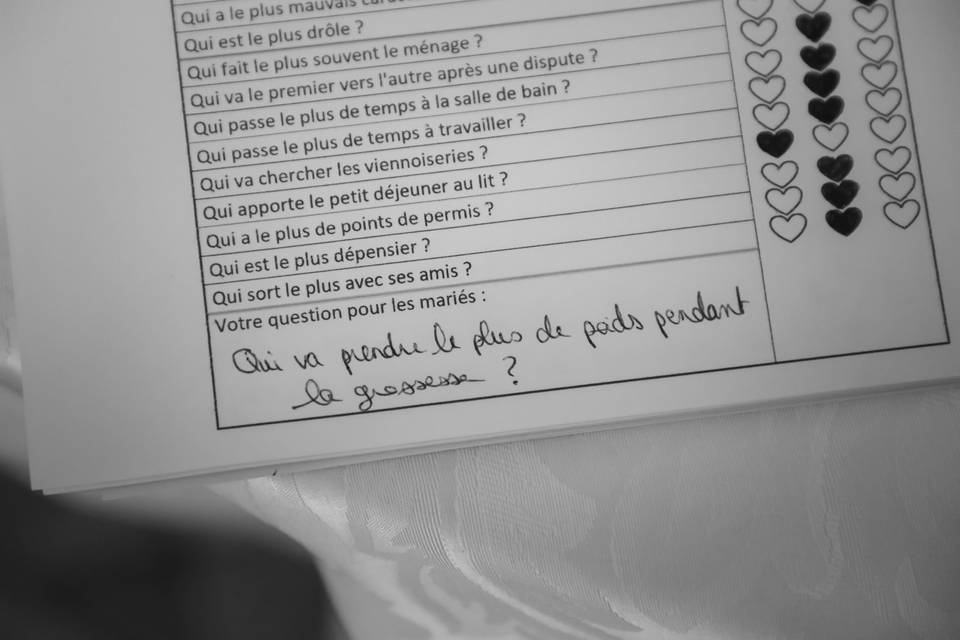 Qui a le plus mauvais
Qui est le plus drôle ?
Qui fait le plus souvent le ménage ?
Qui va le premier vers l'autre après une dispute ?
Qui passe le plus de temps à la salle de bain ?
Qui passe le plus de temps à travailler ?
Qui va chercher les viennoiseries ?
Qui apporte le petit déjeuner au lit ?
Qui a le plus de points de permis ?
Qui est le plus dépensier ?
Qui sort le plus avec ses amis ?
Votre question pour les mariés :
Qui va prendre le plus de poids pendant
la grossesse ?